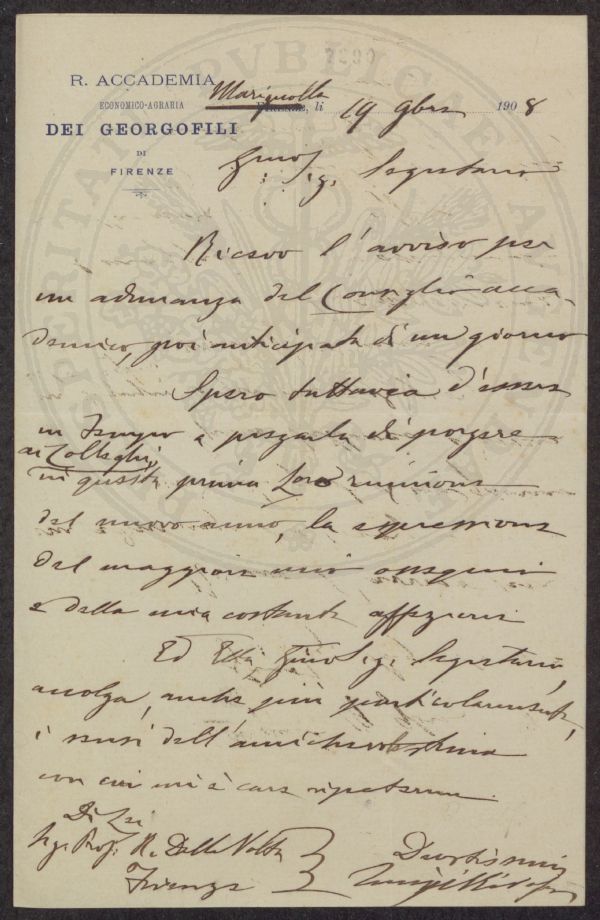 R. ACCADEMIA
ECONOMICO-AGRARIA
DEI GEORGOFILI
DI
FIRENZE
Marignolle
Firenze, li 19 9bre 1908
Sig. Segretario
Ricevo l'avviso per
un adunanza del Consiglio acca-
demico, poi anticipata di un giorno
Spero tuttavia d'essere
in tempo a pregarla di porgere
ai Colleghi,
in questa prima loro riunione
del nuovo anno, la espressione
del maggiore mio ossequio
e della mia costante affezione
Ed Ella Sig. Segretario,
accolga, anche più particolarmente,
i sensi dell'amichevole stima
con cui mi è caro ripetermi
Di Lei
Sig. Prof. R. Dalla Volta
Firenze
Devotissimo
Luigi